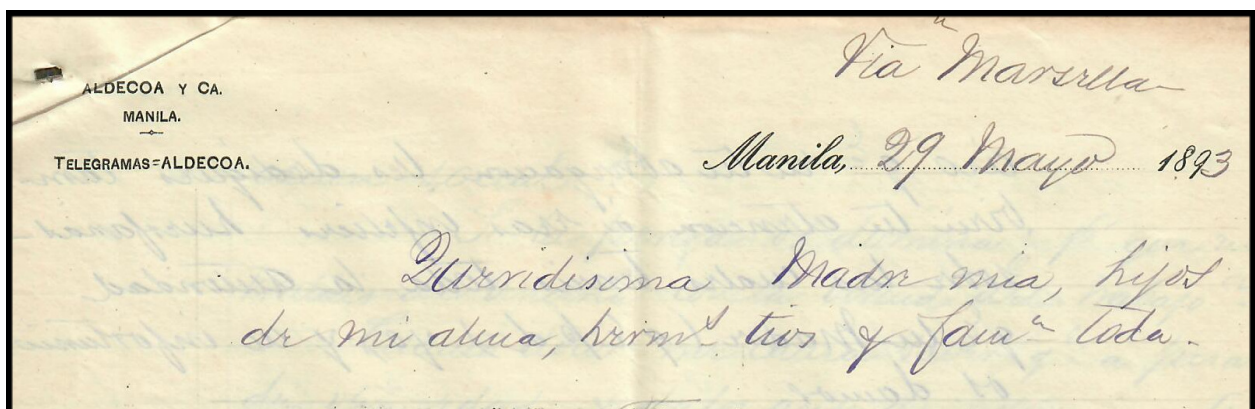 Via Marsella
ALDECOA Y CA.
MANILA.
TELEGRAMAS=ALDECOA.
Manila, 29 Mayo 1893
Queridisima Madre mia, hijos
de mi alma, herms tios y fama toda.